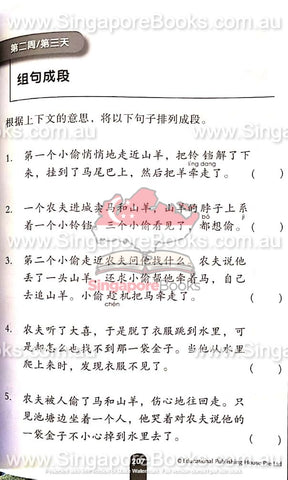 www.SingaporeBooks.com.au
第二周/第三天
组句成段
根据上下文的意思，将以下句子排列成段。
líng dang
1. 第一个小偷悄悄地走近山羊，把铃铛解了下
来，挂到了马尾巴上，然后把羊牵走了。 （ ）
2. 一个农夫进城卖马和山羊，山羊的脖子上系
bó
着一个小铃铛。三个小偷看见了，都想偷。 （ ）
3. 第二个小偷走近农夫问他找什么，农夫说他
丢了一头山羊，还求小偷帮他牵着马，自己
去追山羊。小偷趁机把马牵走了。 （ ）
4. 农夫听了大喜，于是脱了衣服跳到水里，可
是却怎么也找不到那一袋金子。当他从水里
爬上来时，发现衣服不见了。 （ ）
5. 农夫被人偷了马和山羊，伤心地往回走。只
见池塘边坐着一个人，他哭着对农夫说他的
一袋金子不小心掉到水里去了。 （ ）
SingaporeBooks
207
©Educational Publishing House Pte Ltd